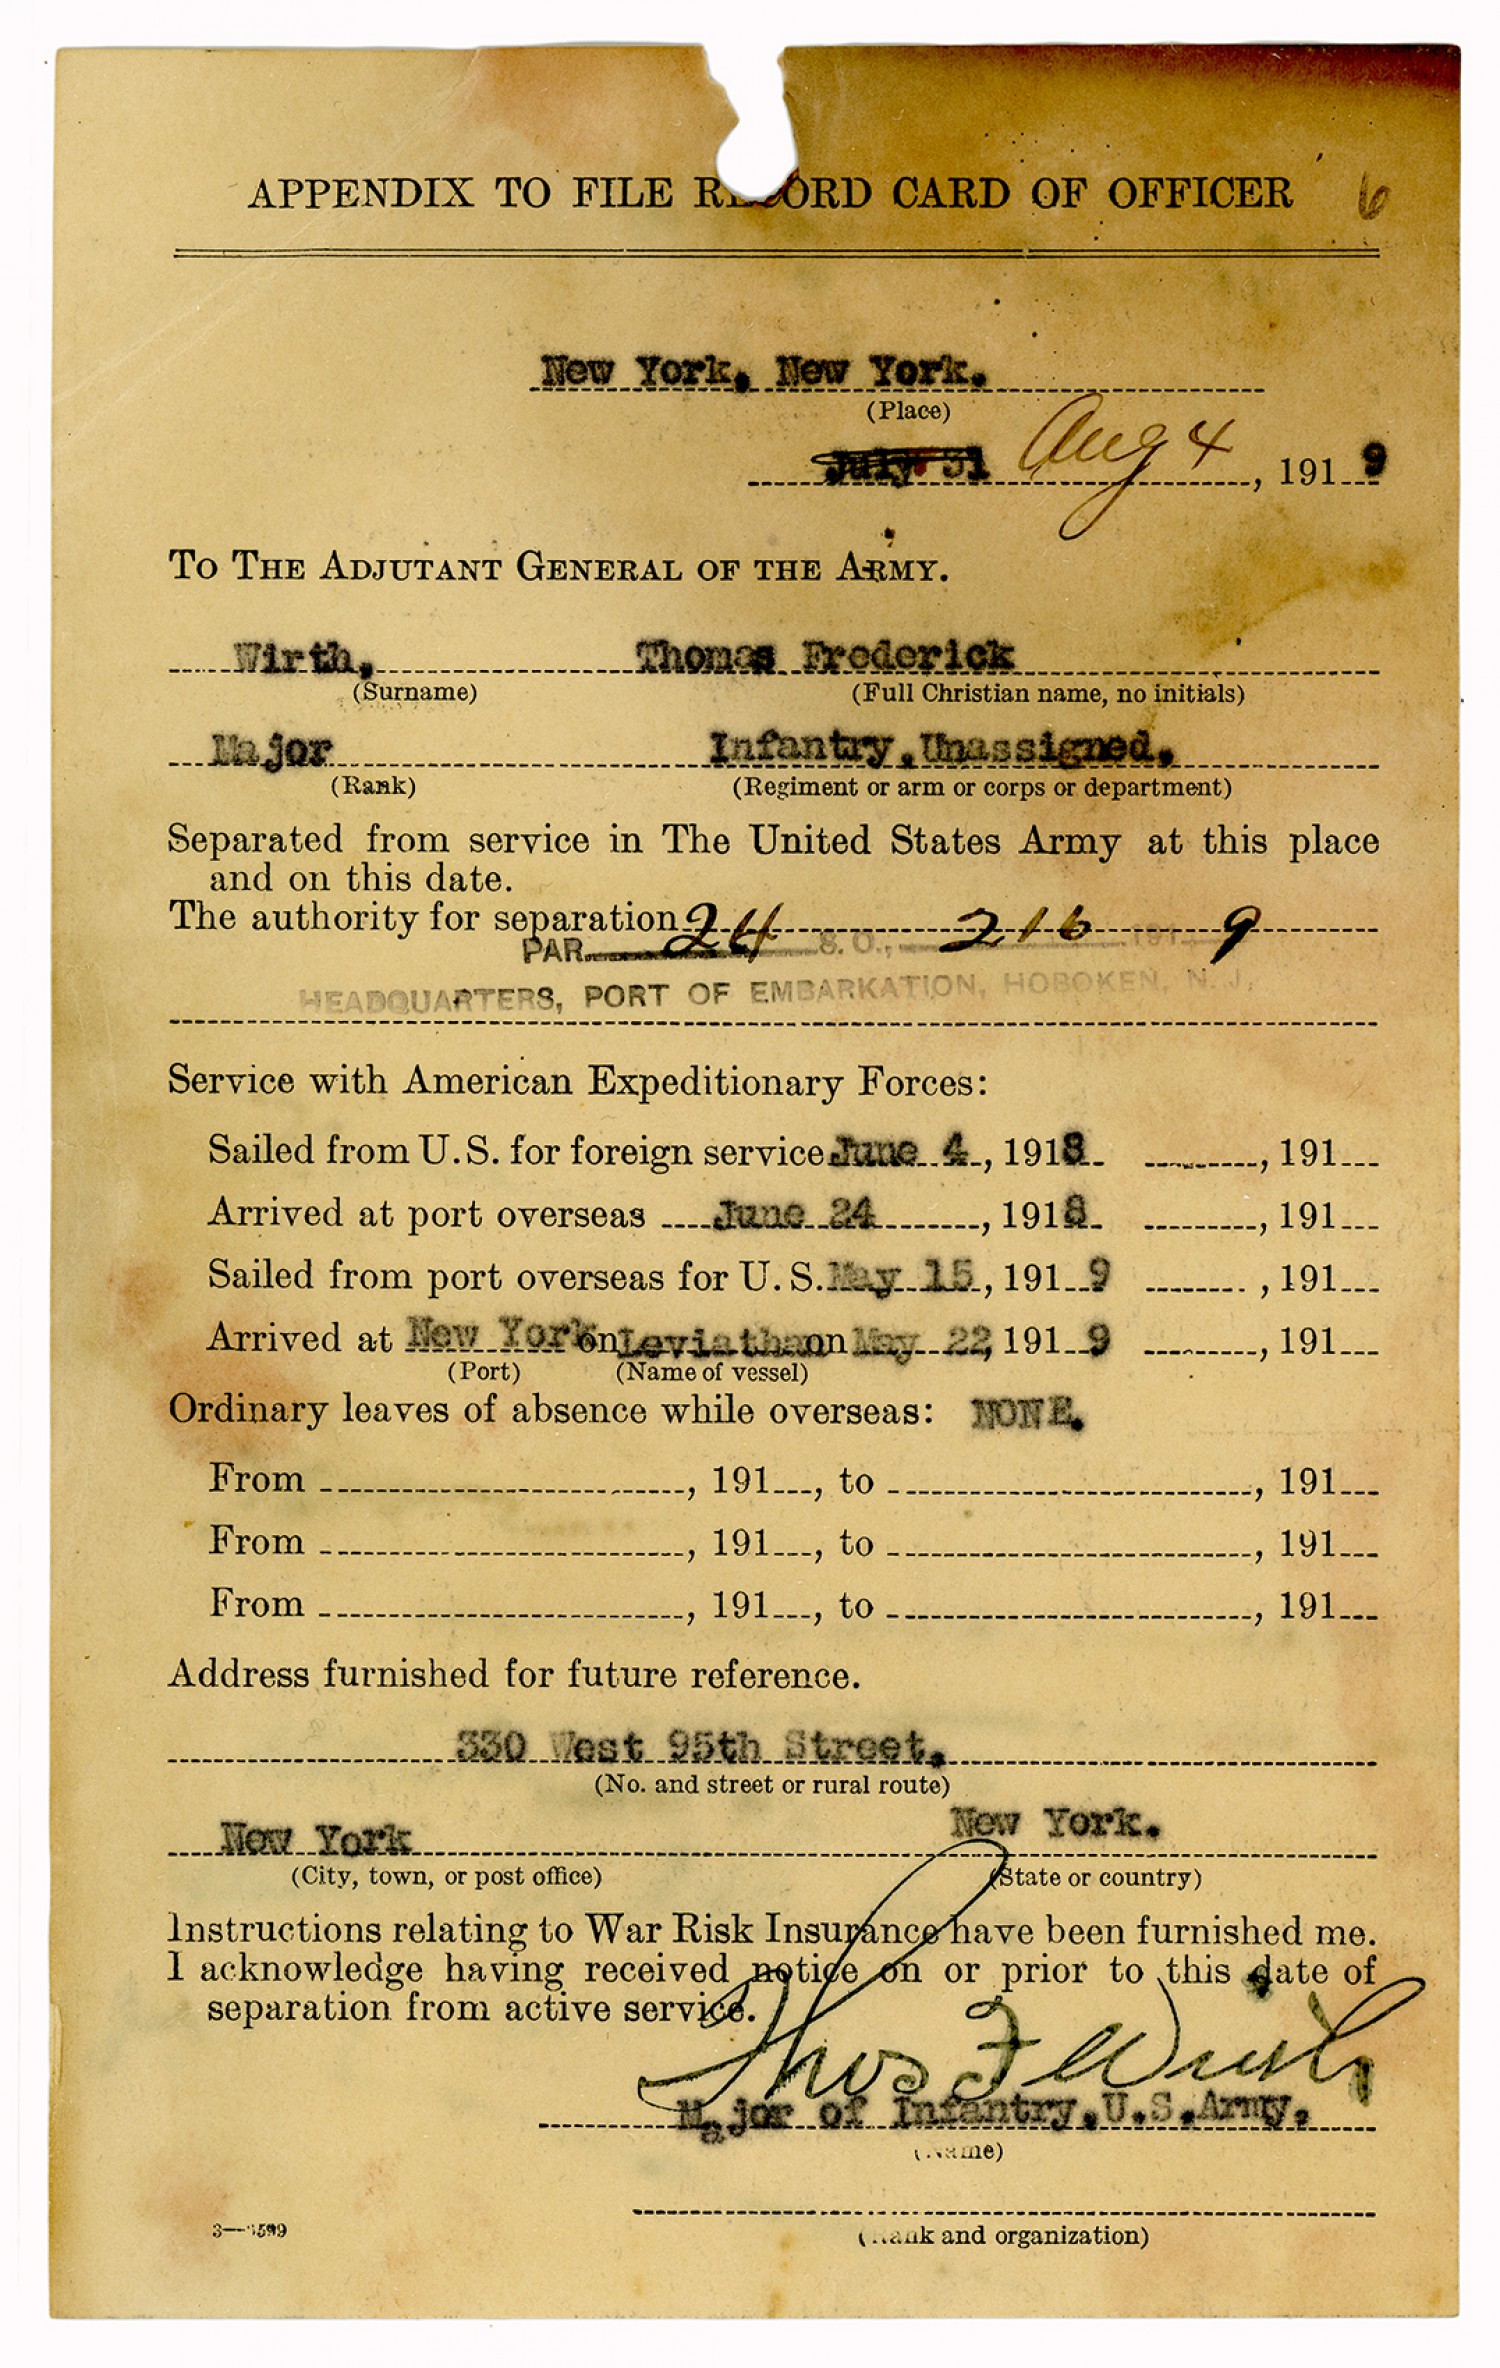 APPENDIX TO FILE RECORD CARD OF OFFICER 6
New York, New York.
(Place)
July 31 Aug 4, 1919
TO THE ADJUTANT GENERAL OF THE ARMY.
Wirth, Thomas Frederick
(Surname) (Full Christian name, no initials)
Major Infantry, Unassigned.
(Rank) (Regiment or arm or corps or department)
Separated from service in The United States Army at this place
and on this date.
The authority for separation
PAR. 24 S. O., 216 191 9
HEADQUARTERS, PORT OF EMBARKATION, HOBOKEN, N. J.
Service with American Expeditionary Forces:
Sailed from U. S. for foreign service June 4, 1918 , 191
Arrived at port overseas June 24, 1918 , 191
Sailed from port overseas for U. S. May 15, 1919 , 191
Arrived at New York on Leviathan on May 22, 1919 , 191
(Port) (Name of vessel)
Ordinary leaves of absence while overseas: NONE.
From , 191 , to , 191
From , 191 , to , 191
From , 191 , to , 191
Address furnished for future reference.
330 West 95th Street.
(No. and street or rural route)
New York New York.
(City, town, or post office) (State or country)
Instructions relating to War Risk Insurance have been furnished me.
I acknowledge having received notice on or prior to this date of
separation from active service.
Thos F Wirth
Major of Infantry, U.S. Army.
(Name)
(Rank and organization)